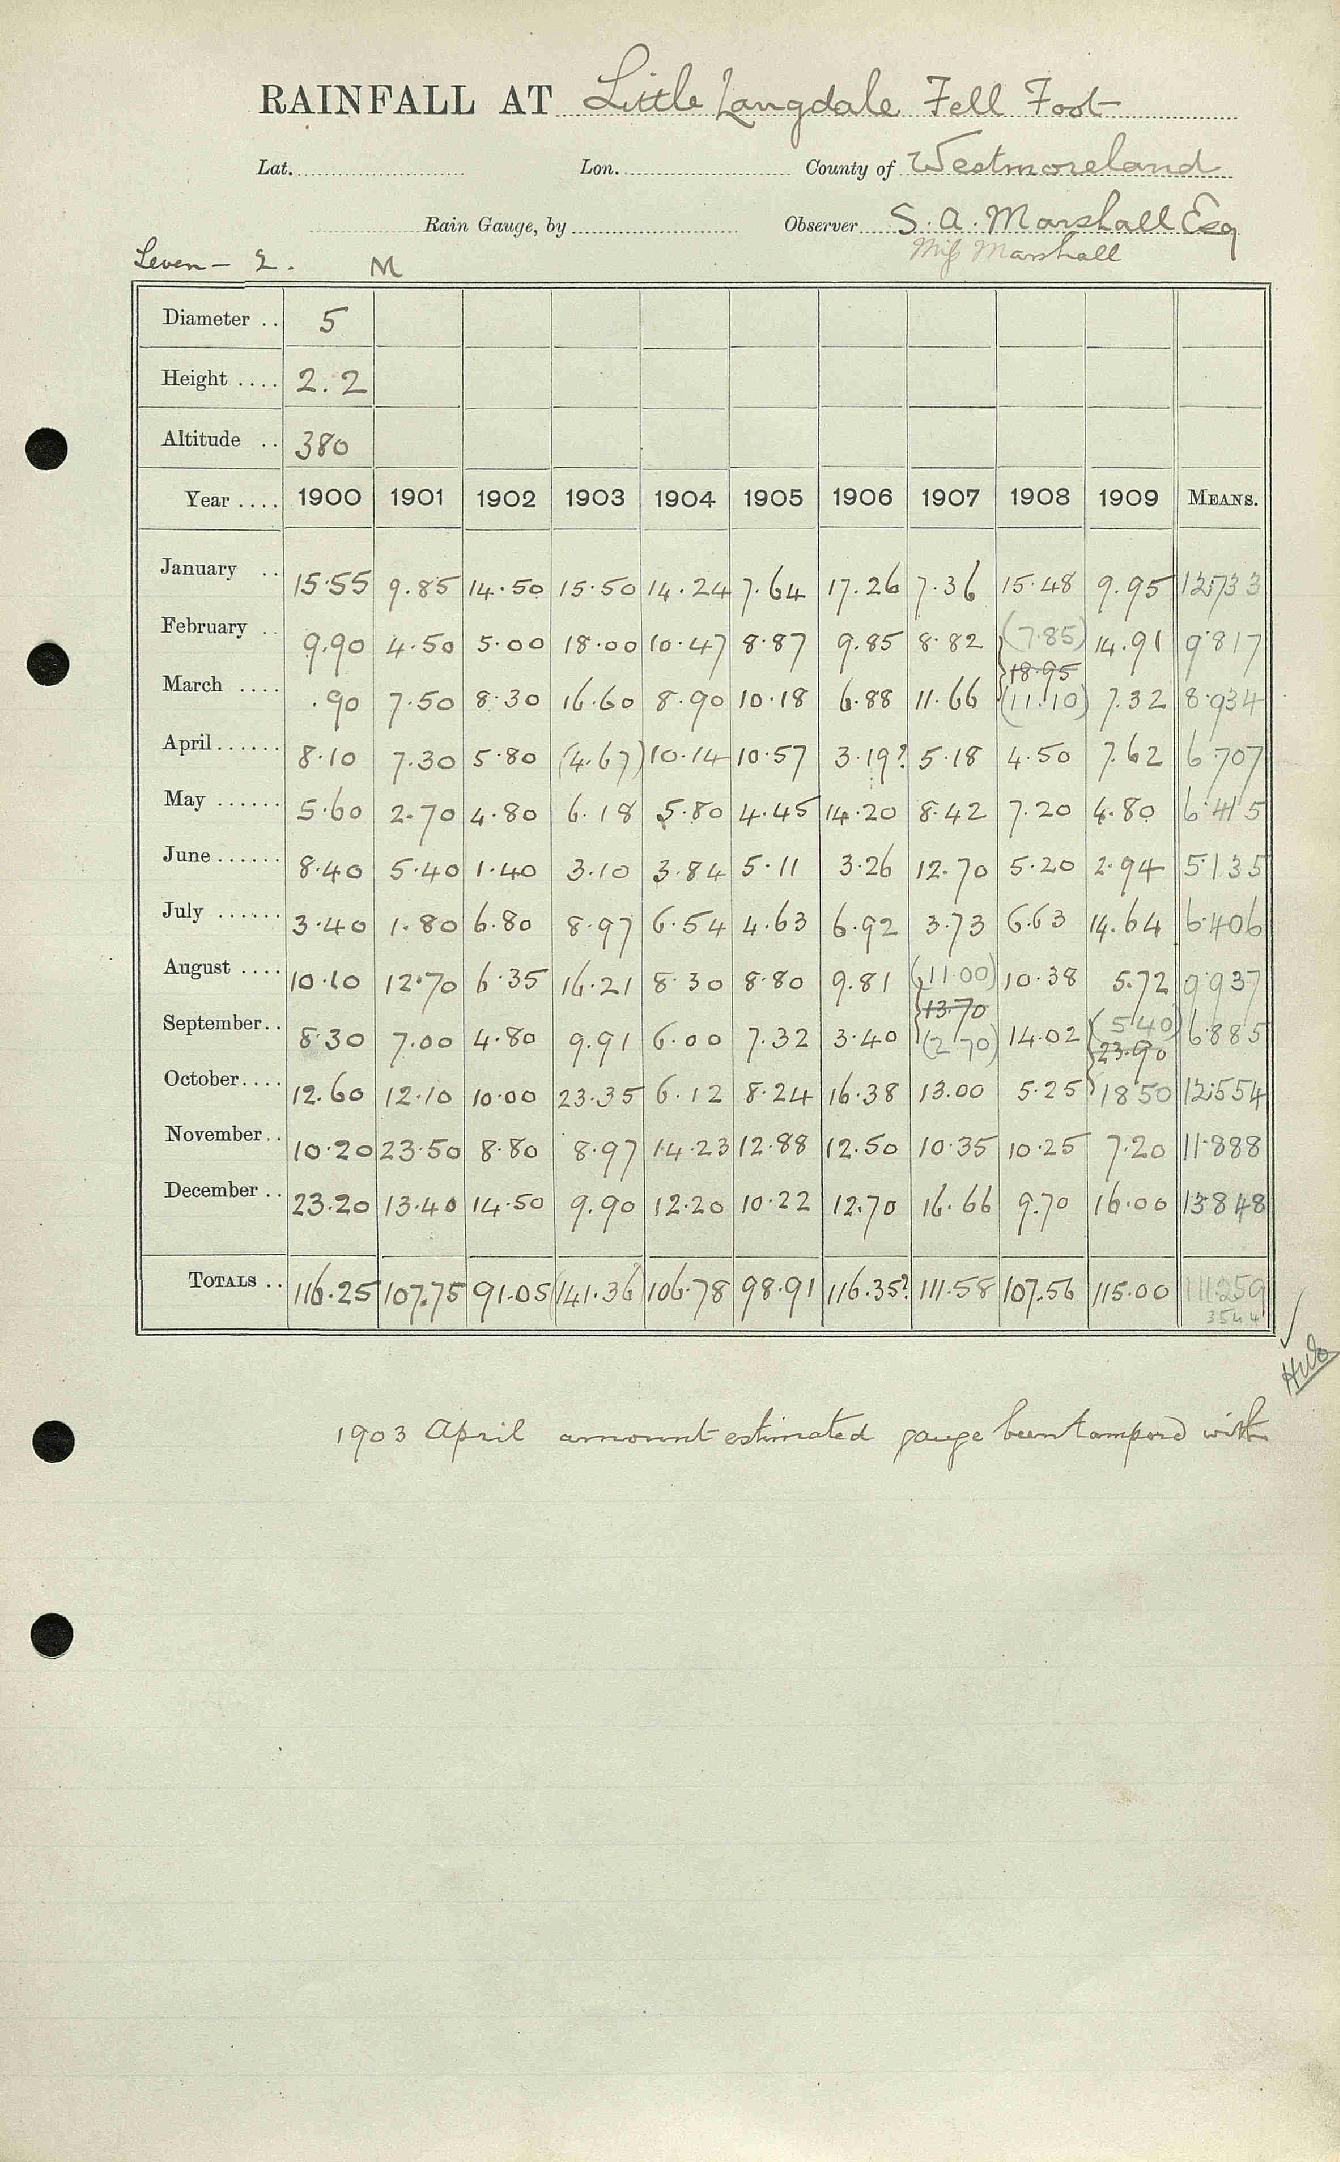 RAINFALL AT Little Langdale Fell Foot
Lat. Lon. County of Westmoreland
Rain Gauge, by Observer S. A. Marshall Esq
Leven - 2. M Miss Marshall
Diameter .. 5
Height .... 2.2
Altitude .. 380
Year .... 1900 1901 1902 1903 1904 1905 1906 1907 1908 1909 MEANS.
January .. 15.55 9.85 14.50 15.50 14.24 7.64 17.26 7.36 15.48 9.95 12.733
February .. 9.90 4.50 5.00 18.00 10.47 8.87 9.85 8.82 (7.85) 14.91 9.817
18.95
March .... .90 7.50 8.30 16.60 8.90 10.18 6.88 11.66 (11.10) 7.32 8.934
April ...... 8.10 7.30 5.80 (4.67) 10.14 10.57 3.19? 5.18 4.50 7.62 6.707
May ...... 5.60 2.70 4.80 6.18 5.80 4.45 14.20 8.42 7.20 4.80 6.415
June ...... 8.40 5.40 1.40 3.10 3.84 5.11 3.26 12.70 5.20 2.94 5.135
July ...... 3.40 1.80 6.80 8.97 6.54 4.63 6.92 3.73 6.63 14.64 6.406
August .... 10.10 12.70 6.35 16.21 8.30 8.80 9.81 (11.00) 10.38 5.72 9.937
13.70
September .. 8.30 7.00 4.80 9.91 6.00 7.32 3.40 (2.70) 14.02 (5.40) 6.885
23.90
October .... 12.60 12.10 10.00 23.35 6.12 8.24 16.38 13.00 5.25 18.50 12.554
November .. 10.20 23.50 8.80 8.97 14.23 12.88 12.50 10.35 10.25 7.20 11.888
December .. 23.20 13.40 14.50 9.90 12.20 10.22 12.70 16.66 9.70 16.00 13.848
TOTALS .. 116.25 107.75 91.05 141.36 106.78 98.91 116.35? 111.58 107.56 115.00 111.259
1903 April amount estimated gauge been tampered with